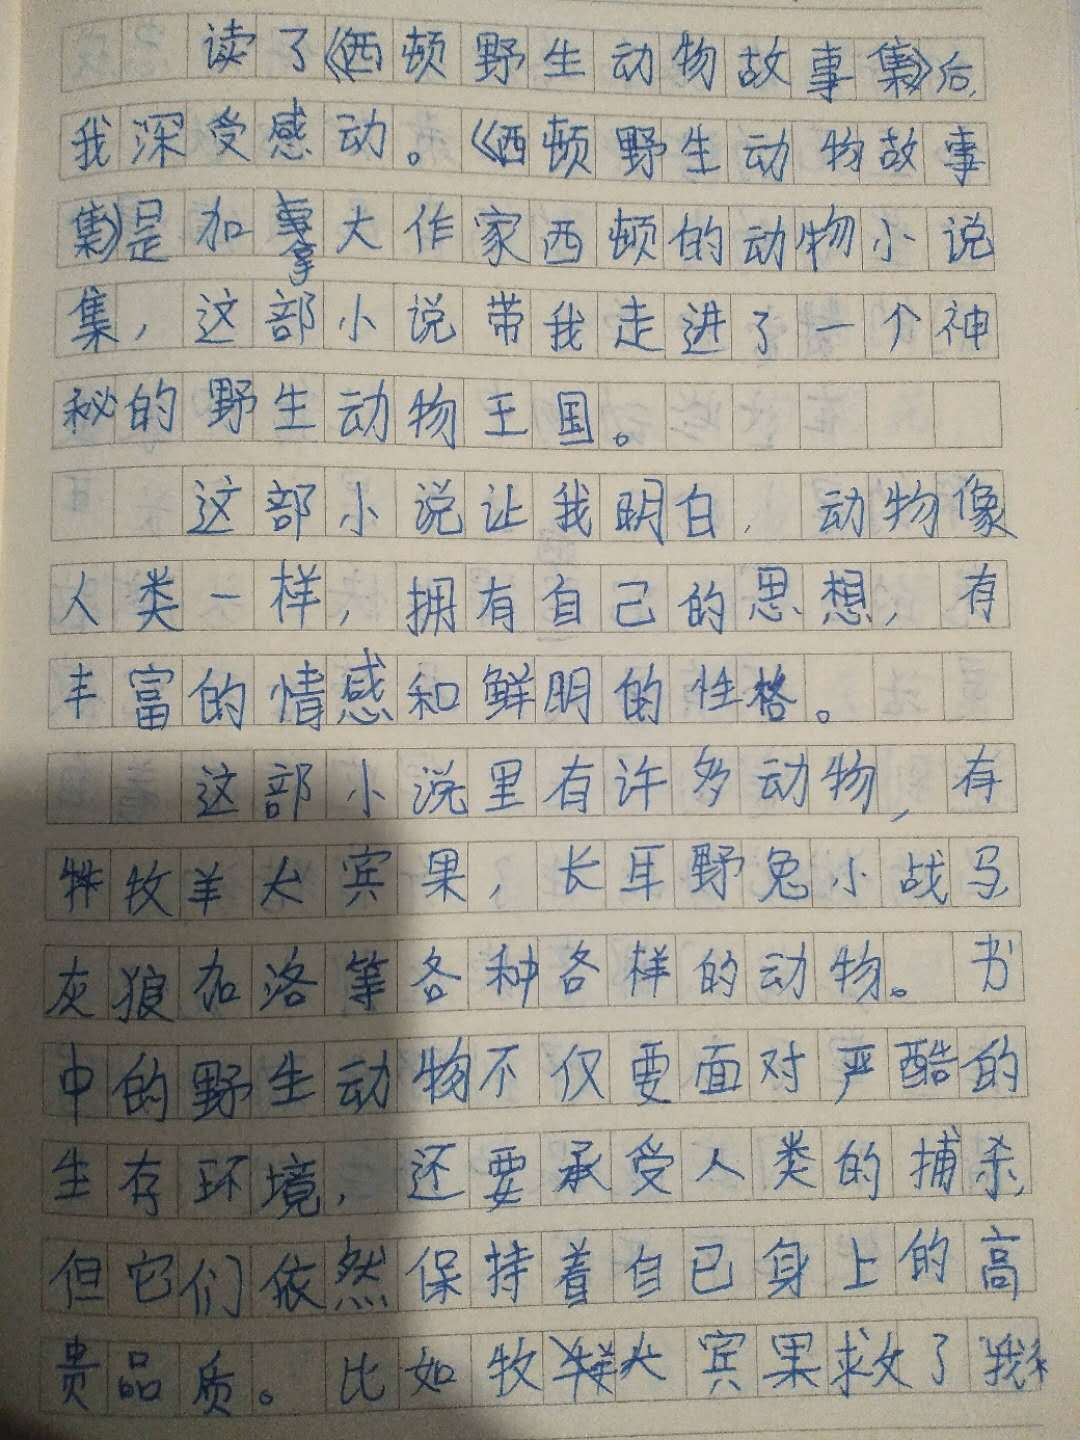 读了《西顿野生动物故事集》后,
我深受感动。《西顿野生动物故事
集》是加拿大作家西顿的动物小说
集,这部小说带我走进了一个神
秘的野生动物王国。
这部小说让我明白,动物像
人类一样,拥有自己的思想,有
丰富的情感和鲜明的性格。
这部小说里有许多动物,有
牧羊犬宾果,长耳野兔小战马,
灰狼加洛等各种各样的动物。书
中的野生动物不仅要面对严酷的
生存环境,还要承受人类的捕杀,
但它们依然保持着自已身上的高
贵品质。比如牧羊犬宾果救了我